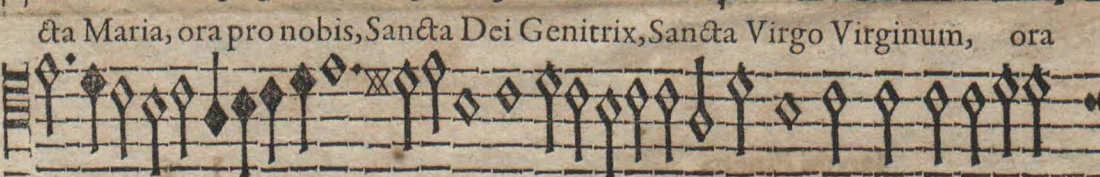 cta Maria, ora pro nobis, Sancta Dei Genitrix, Sancta Virgo Virginum, ora